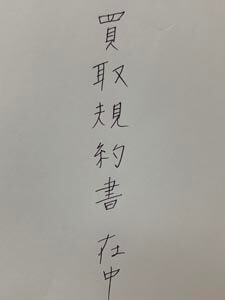 買取規約書 在中